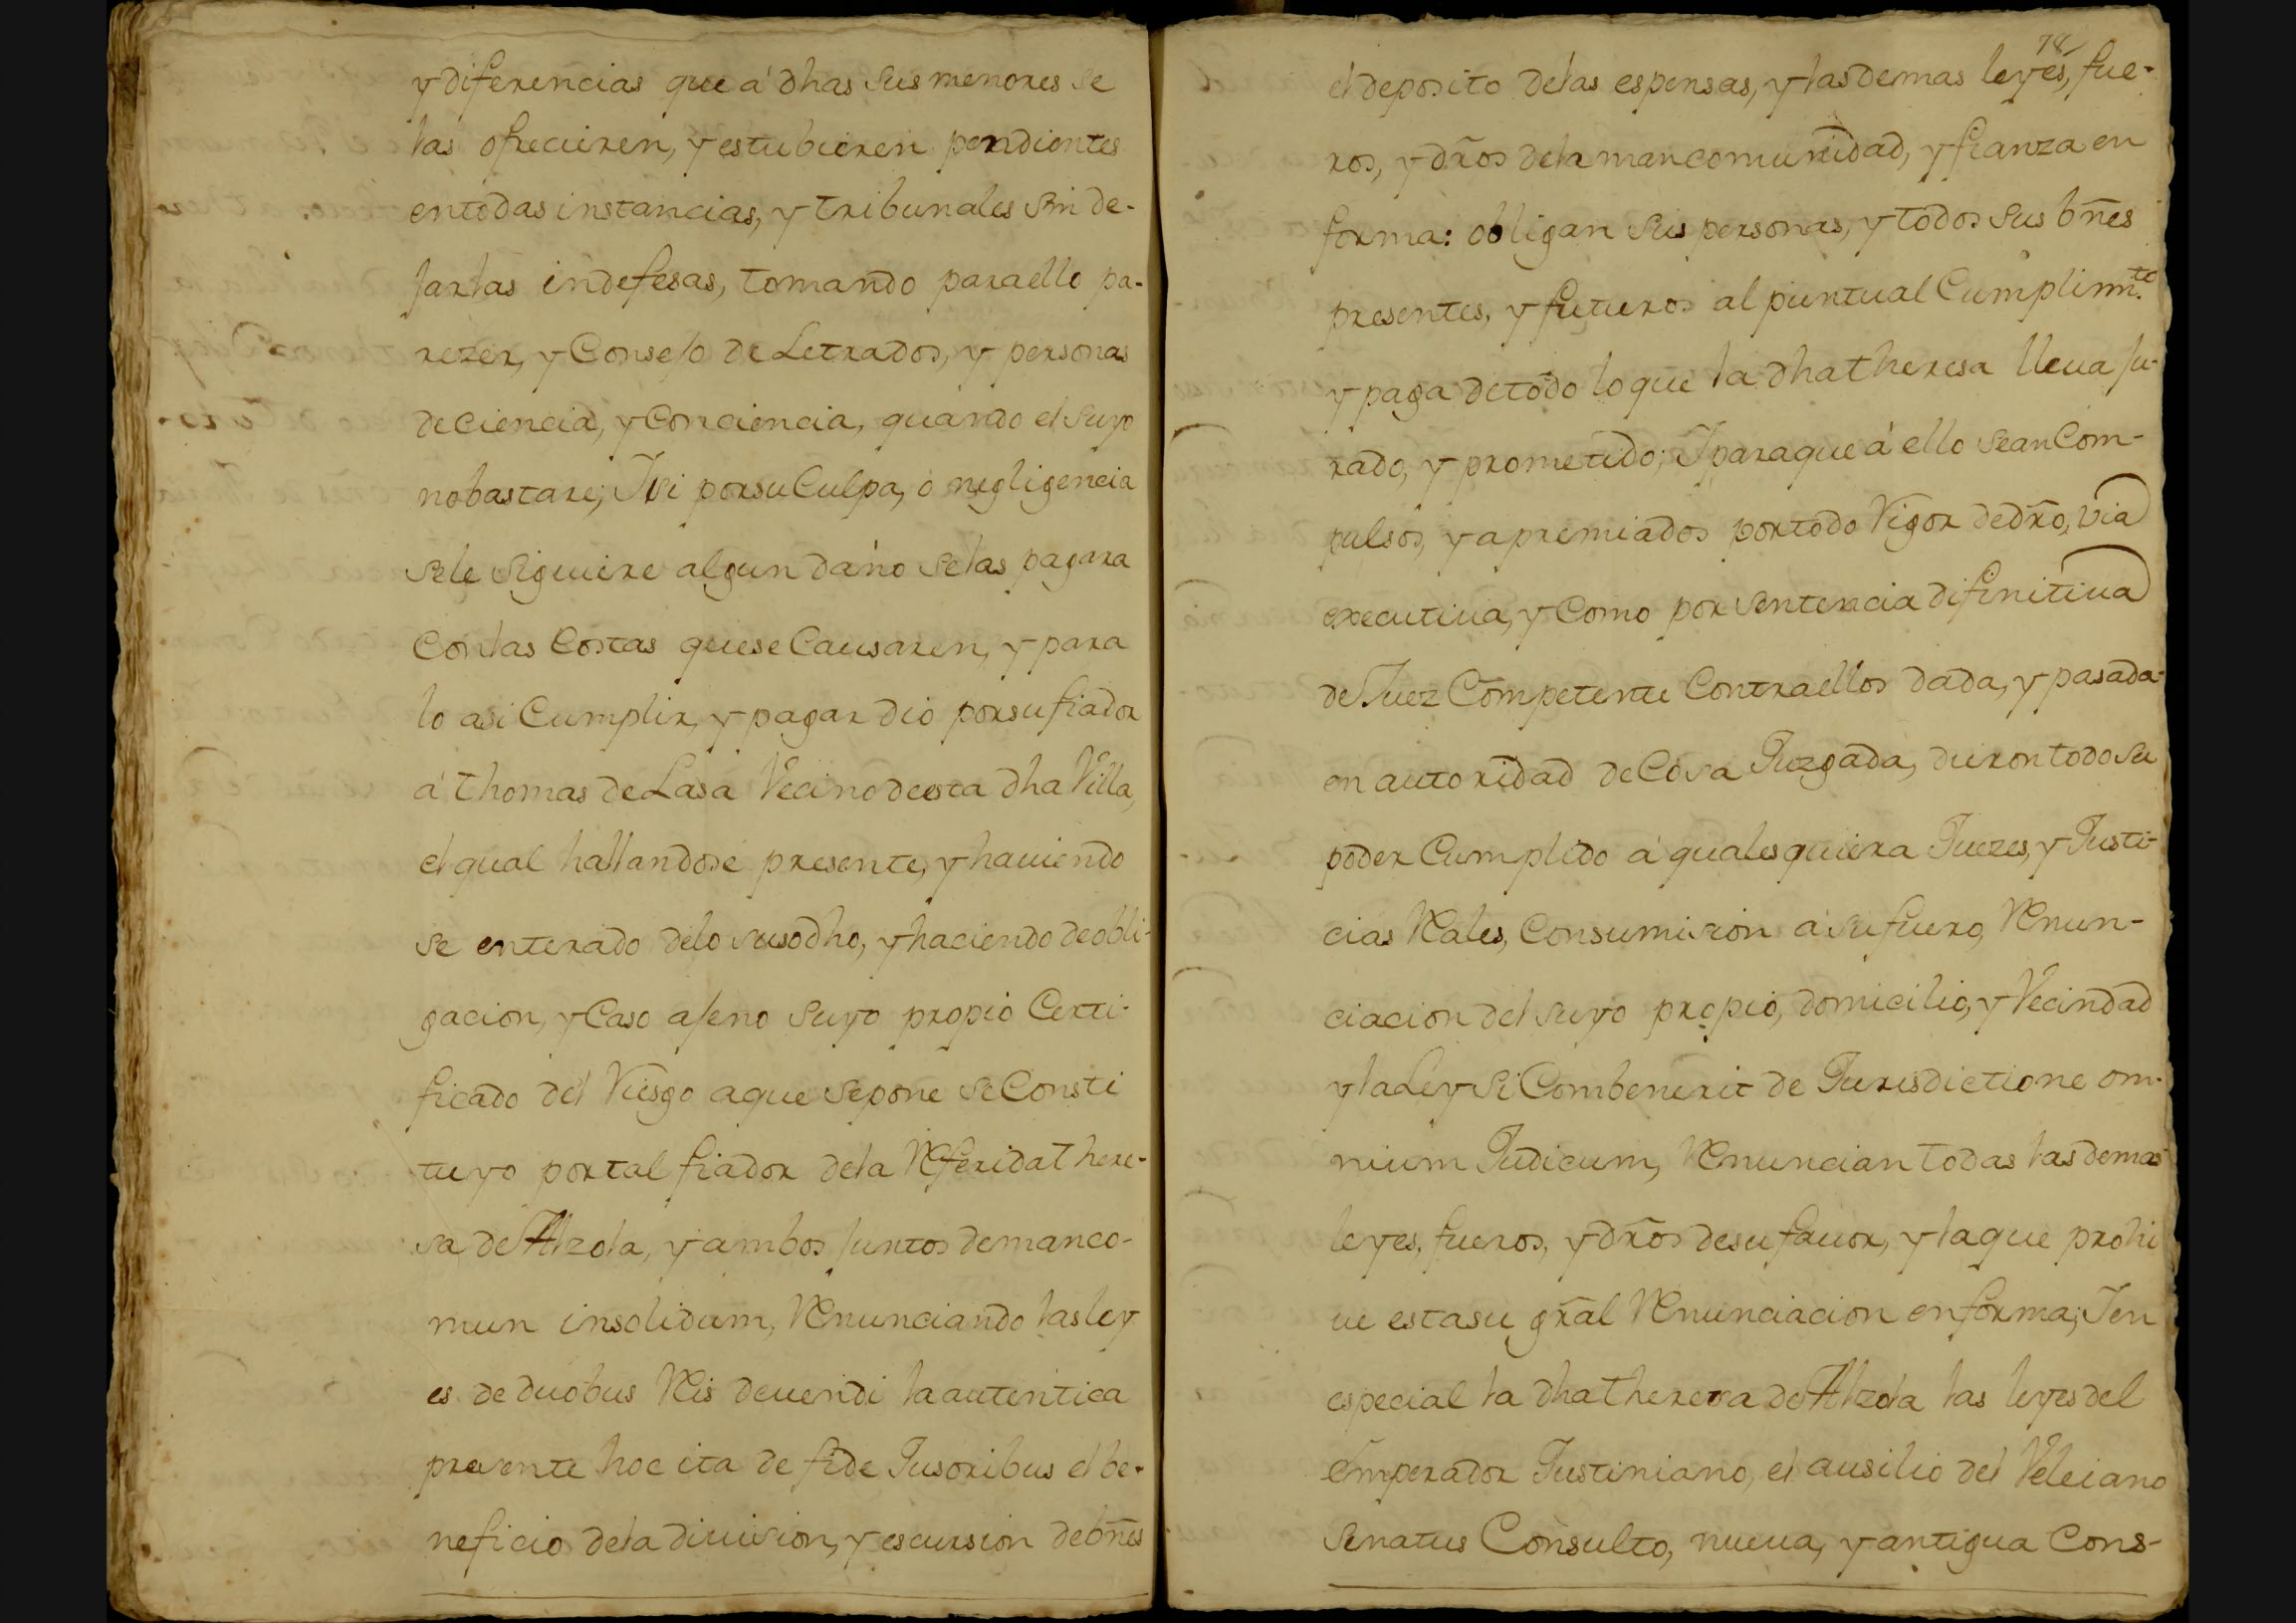 y diferencias que á dhas sus menores se
las ofrecieren, y estubieren pendientes
en todas instancias, y tribunales sin de-
jarlas indefesas, tomando para ello pa-
rezer, y Consejo de Letrados, y personas
de ciencia, y Conciencia, quando el suyo
no bastare; Y si por su Culpa, o negligencia
se le siguiere algun daño se las pagara
Con las Costas que se Causaren, y para
lo asi Cumplir, y pagar dio por su fiador
á Thomas de Lasa Vecino de esta dha Villa,
el qual hallandose presente, y hauiendo
se enterado de lo susodho, y haciendo de obli-
gacion, y Caso ajeno suyo propio Certi-
ficado del Riesgo a que se pone se Consti
tuyo por tal fiador de la Referida There-
sa de Alzola, y ambos juntos de manco-
mun insolidum, Renunciando las ley
es de duobus Reis deuendi la autentica
presente hoc ita de fide Jusoribus el be-
neficio de la diuision, y escursion de bñes
78
el deposito de las espensas, y las demas leyes, fue-
ros, y dr̃os de la mancomunidad, y fianza en
forma: obligan sus personas, y todos sus bñes
presentes, y futuros al puntual Cumplim.to
y paga de todo lo que la dha Theresa lleua ju-
rado, y prometido; Y para que á ello sean Com-
pulsos, y apremiados por todo Vigor de dr̃o, via
executiua, y Como por sentencia difinitiua
de Juez Competente Contra ellos dada, y pasada
en autoridad de Cosa Juzgada, dieron todo su
poder Cumplido á qualesquiera Juezes, y Justi-
cias Reales, Con sumision á su fuero, Renun-
ciacion del suyo propio, domicilio, y Vecindad
y la Ley Si Combenerit de Jurisdictione om-
nium Judicum, Renuncian todas las demas
leyes, fueros, y dr̃os de su fauor, y la que prohi
ue esta su gr̃al Renunciacion en forma; Y en
especial la dha Theresa de Alzola las leyes del
emperador Justiniano, el ausilio del Veleiano
Senatus Consulto, nueua, y antigua Cons-